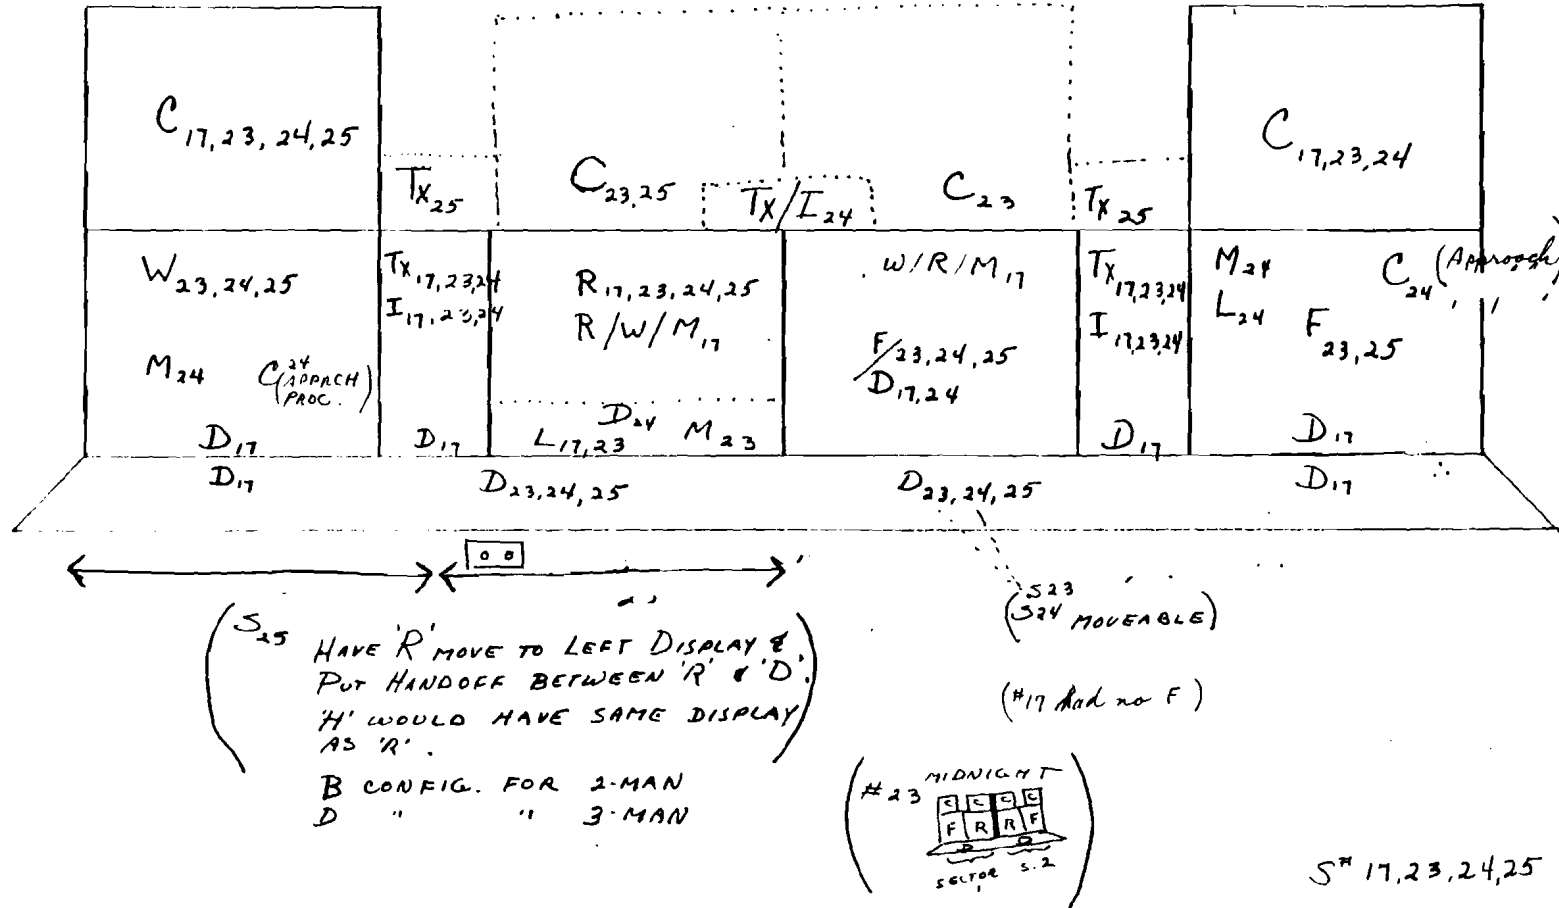 C 17,23,24,25
Tx 25
C 23,25
Tx/I 24
C 23
Tx 25
C 17,23,24
W 23,24,25
M 24
C 24 (APPRCH
PROC.)
D 17
Tx 17,23,24
I 17,23,24
D 17
R 17,23,24,25
R/W/M 17
D 24
L 17,23
M 23
W/R/M 17
F/ 23,24,25
D 17,24
Tx 17,23,24
I 17,23,24
D 17
M 24
L 24
C 24 (Approach)
F 23,25
D 17
D 17
D 23,24,25
D 23,24,25
D 17
(S25 HAVE 'R' MOVE TO LEFT DISPLAY &
PUT HANDOFF BETWEEN 'R' & 'D'.
'H' WOULD HAVE SAME DISPLAY
AS 'R'.)
B CONFIG. FOR 2-MAN
D " " 3-MAN
(S23
S24 MOVEABLE)
(#17 had no F)
(#23 MIDNIGHT
C C C C
F R R F
D D
SECTOR 1 S.2)
S# 17,23,24,25